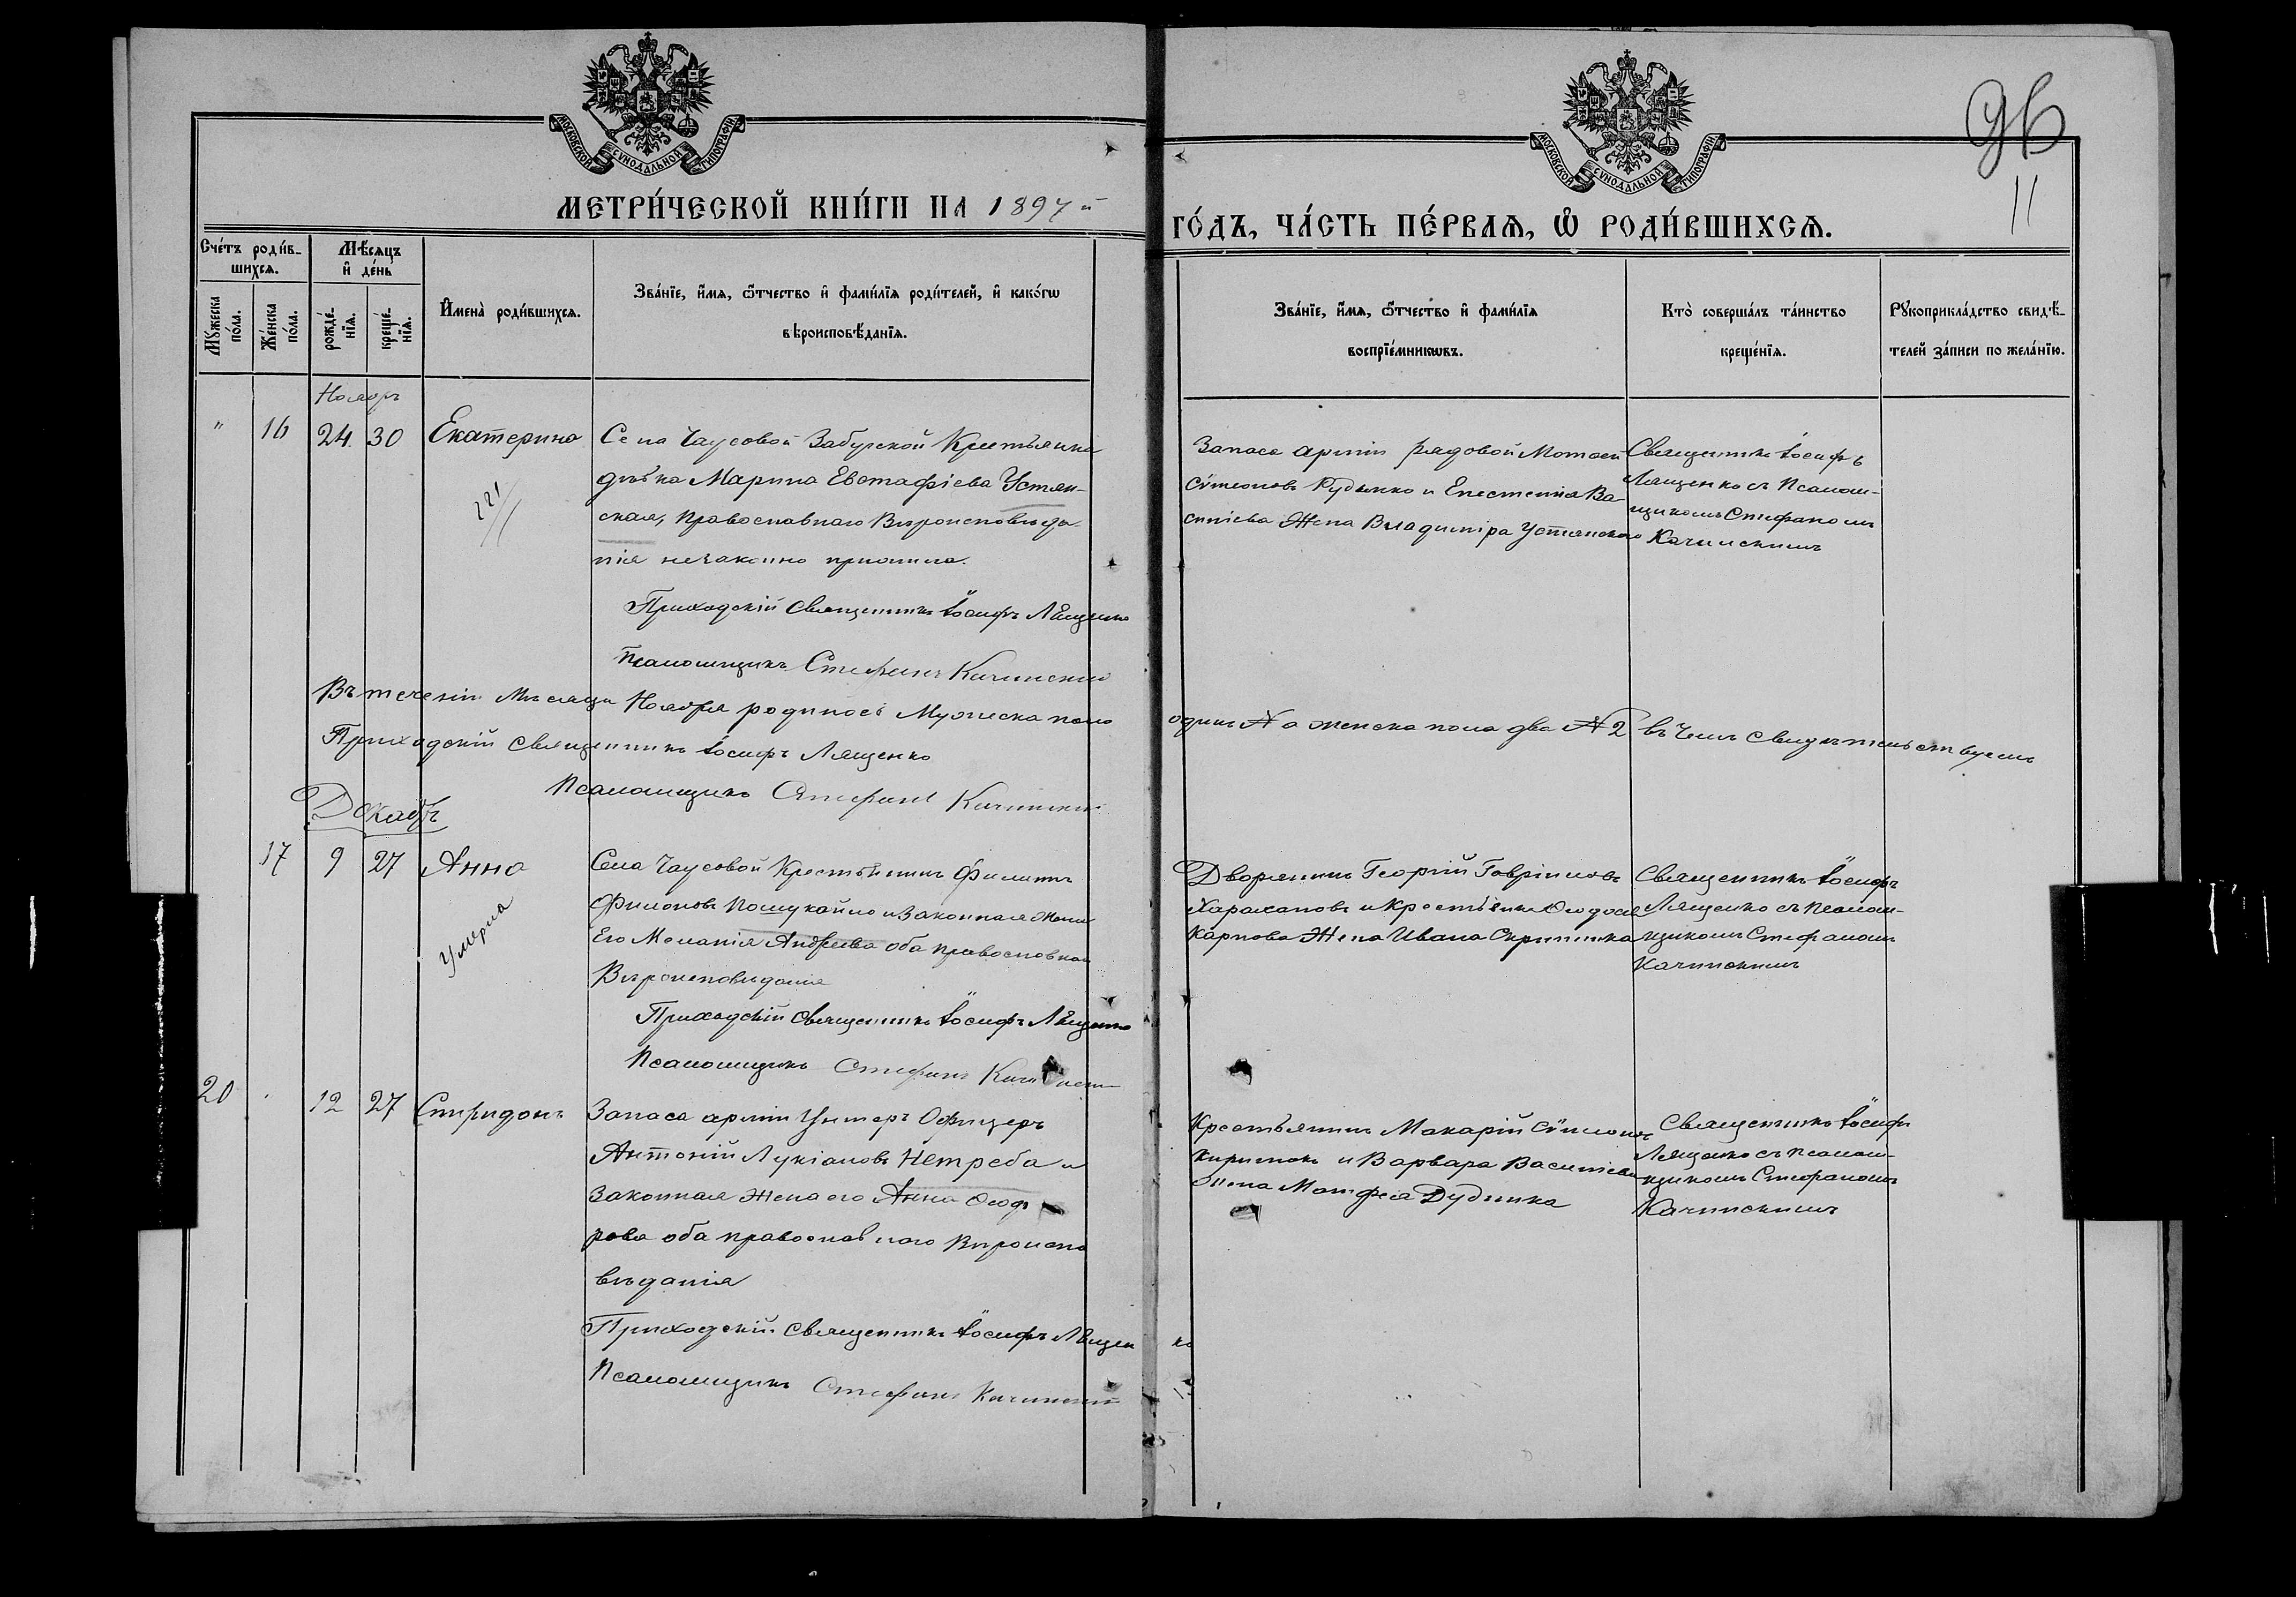 МОСКОВСКОЙ СѴНОДАЛЬНОЙ ТИПОГРАФІИ
МОСКОВСКОЙ СѴНОДАЛЬНОЙ ТИПОГРАФІИ
96
11
МЕТРИ́ЧЕСКОЙ КНИ́ГИ НА 1897 й
ГО́ДЪ, ЧА́СТЬ ПЕ́РВАѦ, Ѽ РОДИ́ВШИХСѦ.
Сче́тъ роди́в-
шихсѧ.
Мѣ́сѧцъ
и҆ де́нь
Мꙋжеска по́ла.
Же́нска по́ла.
рожде́-нїѧ.
креще́-нїѧ.
И҆мена̀ роди́вшихсѧ.
Зва́нїе, и҆́мѧ, ѻ҆́тчество и҆ фами́лїѧ роди́телей, и҆ како́гѡ
вѣроисповѣ́данїѧ.
Зва́нїе, и҆́мѧ, ѻ҆́тчество и҆ фами́лїѧ
воспрїе́мникѡвъ.
Кто̀ соверша́лъ та́инство
креще́нїѧ.
Рꙋкоприкла́дство свидѣ́-
телей за́писи по жела́нїю.
Ноябрь
" 16 24. 30 Екатерина
221
Села Чаусовой Забугской Крестьянка
дѣвка Марина Евстафіева Устян-
ская, православнаго Вѣроисповѣда-
нія незаконно прижила.
Приходскій Священникъ Іосифъ Лященко
Псаломщикъ Стефанъ Качинскій
Запаса арміи рядовой
Сѵмеоновъ и Ва-
силіева Жена Владиміра Устянскаго
Священникъ Іосифъ
Лященко съ Псалом-
щикомъ Стефаномъ
Качинскимъ
Въ теченіи Мѣсяца Ноября родилось Мужеска пола
одинъ а женска пола два № 2 въ чемъ Свидѣтельствуемъ
Приходскій Священникъ Іосифъ Лященко
Псаломщикъ Стефанъ Качинскій
Декабрь
17 9 27 Анна
Умерла
Села Чаусовой Крестьянинъ Филиппъ
Филоновъ и Законная Жена
Его Меланія Андреева оба православнаго
Вѣроисповѣданія
Приходскій Священникъ Іосифъ Лященко
Псаломщикъ Стефанъ Качинскій
Дворянинъ Георгій Гавріиловъ
Харахановъ и Крестьянка Ѳеодосія
Карпова Жена Ивана
Священникъ Іосифъ
Лященко съ Псалом-
щикомъ Стефаномъ
Качинскимъ
20 12 27 Спиридонъ
Запаса арміи Унтеръ Офицеръ
Антоній Лукіановъ Нетреба и
Законная Жена его Анна Ѳеодо
рова оба православнаго Вѣроиспо
вѣданія
Приходскій Священникъ Іосифъ Лященко
Псаломщикъ Стефанъ Качинскій
Крестьянинъ Макарій Сѵмеоновъ
и Варвара Василіева
Жена Матфея Дудника
Священникъ Іосифъ
Лященко съ Псалом-
щикомъ Стефаномъ
Качинскимъ